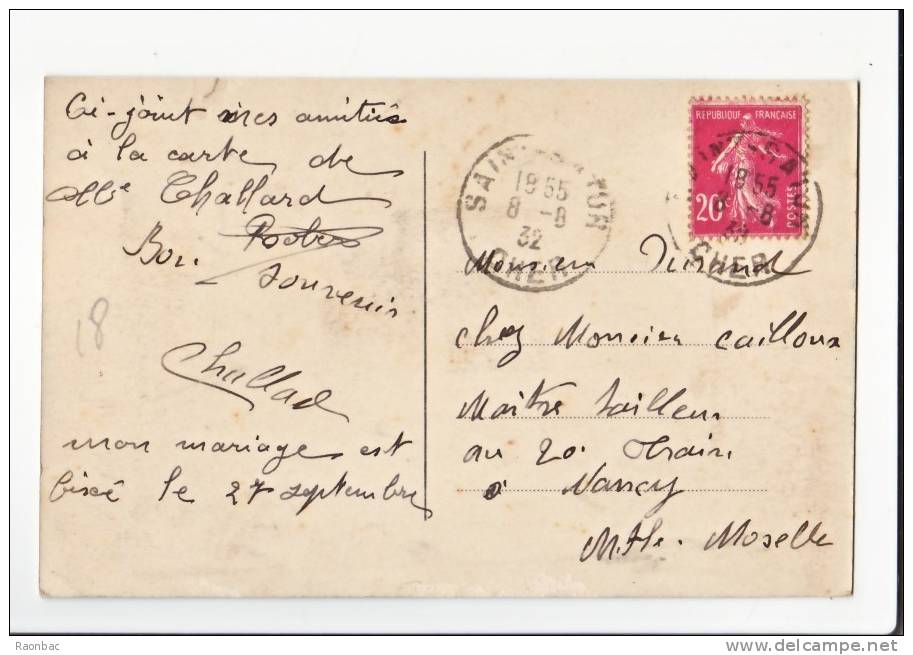 Ci-joint mes amitiés
à la carte de
Mlle Challard
Bon
souvenir
Challard
mon mariage est
fixé le 27 septembre
18
SAINT-SATUR
18 55
8 -8
32
CHER
REPUBLIQUE FRANÇAISE
20c
POSTES
SAINT-SATUR
18 55
8 -8
32
CHER
Monsieur Durand
chez Monsieur Cailloux
Maître tailleur
au 20. Train
à Nancy
M.tte. Moselle
Raonbac
www.delcampe.net